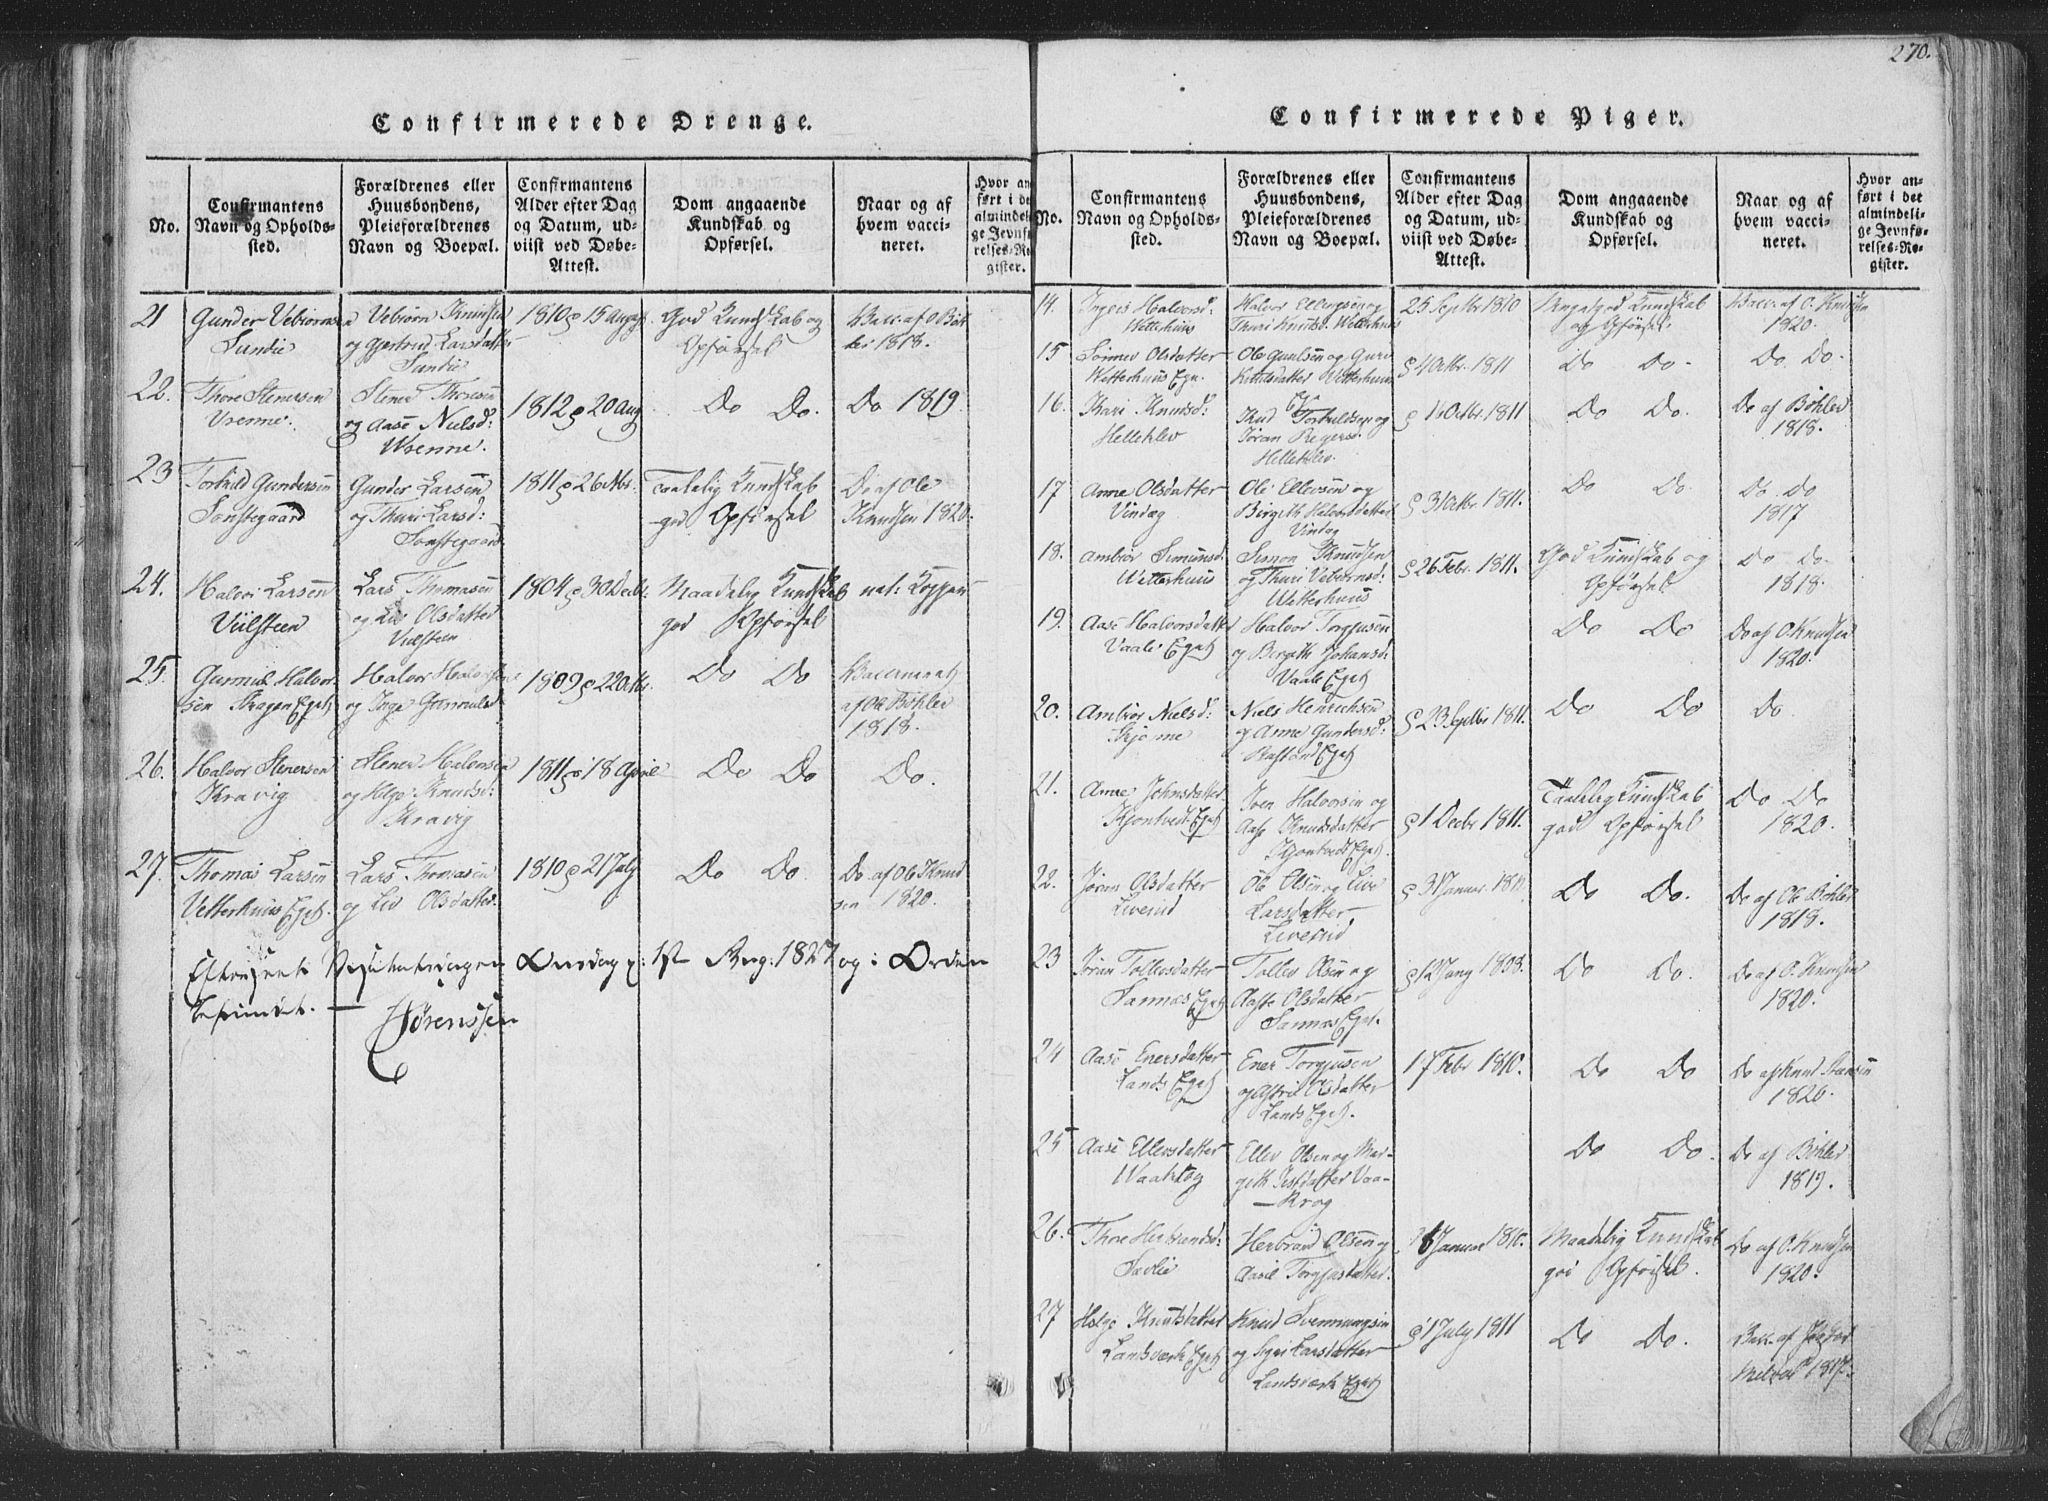 270.
Confirmerede Drenge.
No.
Confirmantens
Navn og Opholds-
sted.
Forældrenes eller
Huusbondens,
Pleieforældrenes
Navn og Boepæl.
Confirmantens
Alder efter Dag
og Datum, ud-
viist ved Døbe-
Attest.
Dom angaaende
Kundskab og
Opførsel.
Naar og af
hvem vacci-
neret.
Hvor an
ført i det
almindeli
ge Jevnfø
relses-Re
gister.
21
Gunder Vebiørnsen
Sundie
Vebiørn Knudsen
og Gjertrud Larsdatter
Sundie
1810 15 Aug
God Kundskab og
Opførsel
Vacc. af O Bøh
ler 1818.
22.
Thore Stenersen
Vrenne.
Stener Thoresen
og Aase Nielsd:
Wrenne.
1812 20 Aug
Do Do.
Do 1819.
23
Torkild Gundersen
Sønstegaard
Gunder Larsen
og Thuri Larsd:
Sønstegaard
1811 26
Taalelig Kundskab
god Opførsel
Do af Ole
Knudsen 1820.
24.
Halvor Larsen
Viilsteen
Lars Thomasen
og Liv Olsdatter
Viilsteen
1804 30 Decbr.
Maadelig Kundskab
god Opførsel
nat: Kopper
25.
Gunnul Halvor
sen Kragen Eget
Halvor Halvorsen
og Inge Gunnulsd
1809 22
Do Do
Vaccineret
af Ole Bøhler
1818.
26.
Halvor Stenersen
Kravig
Stener Halvorsen
og Helge Knudsd:
Kravig
1811 18 April
Do Do
Do.
27.
Thomas Larsen
Vetterhuus Eget.
Lars Thomasen
og Liv Olsdatter
1810 21 July
Do Do.
Do. af Ole Knud
sen 1820.
Efterseet Visitatsdagen Onsdag 1st Aug: 1827 og i Orden
befundet. —
Sørenssen
Confirmerede Piger.
No.
Confirmantens
Navn og Opholds-
sted.
Forældrenes eller
Huusbondens,
Pleieforældrenes
Navn og Boepæl.
Confirmantens
Alder efter Dag
og Datum, ud-
viist ved Døbe-
Attest.
Dom angaaende
Kundskab og
Opførsel.
Naar og af
hvem vacci-
neret.
Hvor an-
ført i det
almindeli-
ge Jevnfø-
relses-Re-
gister.
14.
Halvorsd.
Wetterhuus
Halvor Ellingsen og
Thuri Knudsd. Wetterhuus
25 Septbr 1810
god Kundskab
og Opførsel.
Vacc. af O. Knudsen
1820.
15
Olsdatter
Wetterhuus Ege.
Ole Gunlsen og Guro
Knudsdatter Wetterhuus
4 Octbr. 1811
Do Do.
Do Do.
16.
Kari Knudsd:
Helleklev
Knud Torkildsen og
Jøran Regersd.
Helleklev.
16 Octbr. 1811
Do Do.
Do af Bøhler
1818.
17
Anne Olsdatter
Vindæg
Ole Ellevsen og
Birgith Halvorsdatter
Vindæg
31 Octbr. 1811.
Do Do.
Do Do
1817
18.
Ambiør Simonsd.
Wetterhuus
Simon Knudsen
og Thuri Vebiørnsd:
Wetterhuus
26 Febr. 1811.
God Kundskab og
Opførsel
Do Do.
1818.
19.
Aase Halvorsdatter
Vaale Eget
Halvor Torgjusen
og Birgith Johansd:
Vaale Eget
Do Do
Do af O. Knudsen
1820.
20.
Ambiør Nielsd:
Skjønne
Niels Henrichsen
og Anne Gundersd:
Eget
23 Septbr 1811.
Do Do
Do
21.
Anne Johnsdatter
Kjontvedt Eget
Iver Halvorsen og
Aase Knudsdatter
Kjontvedt Eget.
1 Decbr 1811.
Taalelig Kundskab
god Opførsel
Do Do
1820.
22.
Jøran Olsdatter
Liverud
Ole Olsen og Live
Larsdatter
Liverud
31 Januar
Do Do.
Do af Ole Bøhler
1818.
23
Jøran Tollevsdatter
Sannæs Eget
Tollev Olsen og
Aaste Olsdatter
Sannæs Eget.
12 Jany 1808.
Do Do.
Do af O. Knudsen
1820.
24
Aase Enersdatter
Lands Eget
Ener Torgjusen
og Astrie Olsdatter
Lands Eget.
17 Febr 1810.
Do Do
Do af Knud
1820.
25
Aase Ellevsdatter
Waakrog
Ellev Olsen og Mar-
geth datter Vaa-
krog
Do Do.
Do af Bøhler
1819.
26.
Thore Herbrandsd:
Sævlie
Herbrand Olsen og
Aasil Torgjusdatter.
Januar 1810.
Maadelig Kundskab
god Opførsel.
Do af O. Knudsen
1820.
27
Helge Knutsdatter
Landsværk Eget
Knud Svenningsen
og Sigri Larsdatter
Landsværk Eget
1 July 1811
Do Do.
Vacc. af
1817.